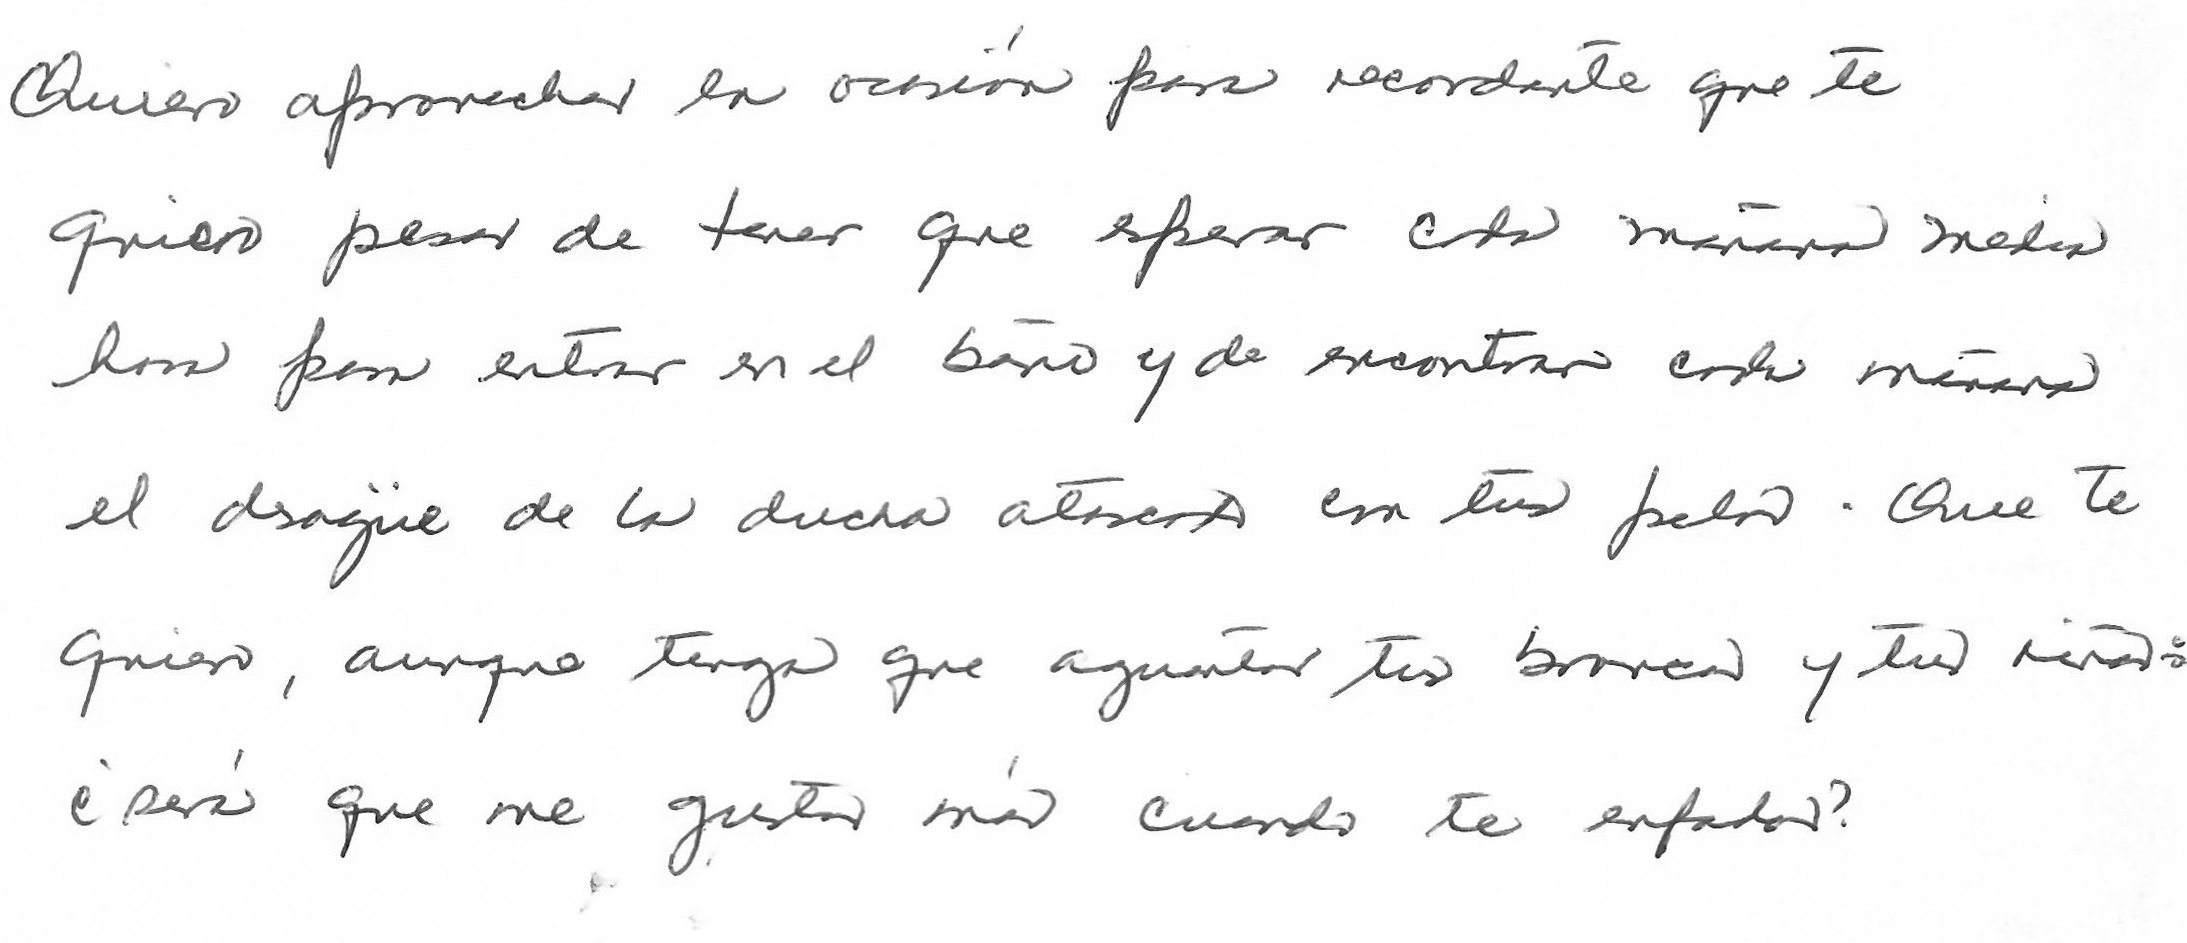 Quiero aprovechar la ocasión para recordarte que te
quiero pesar de tener que esperar cada mañana media
hora para entrar en el baño y de encontrar cada mañana
el desagüe de la ducha atascado con tus pelos. Que te
quiero, aunque tenga que aguantar tus broncas y tus riñas:
¿será que me gustas más cuando te enfadas?